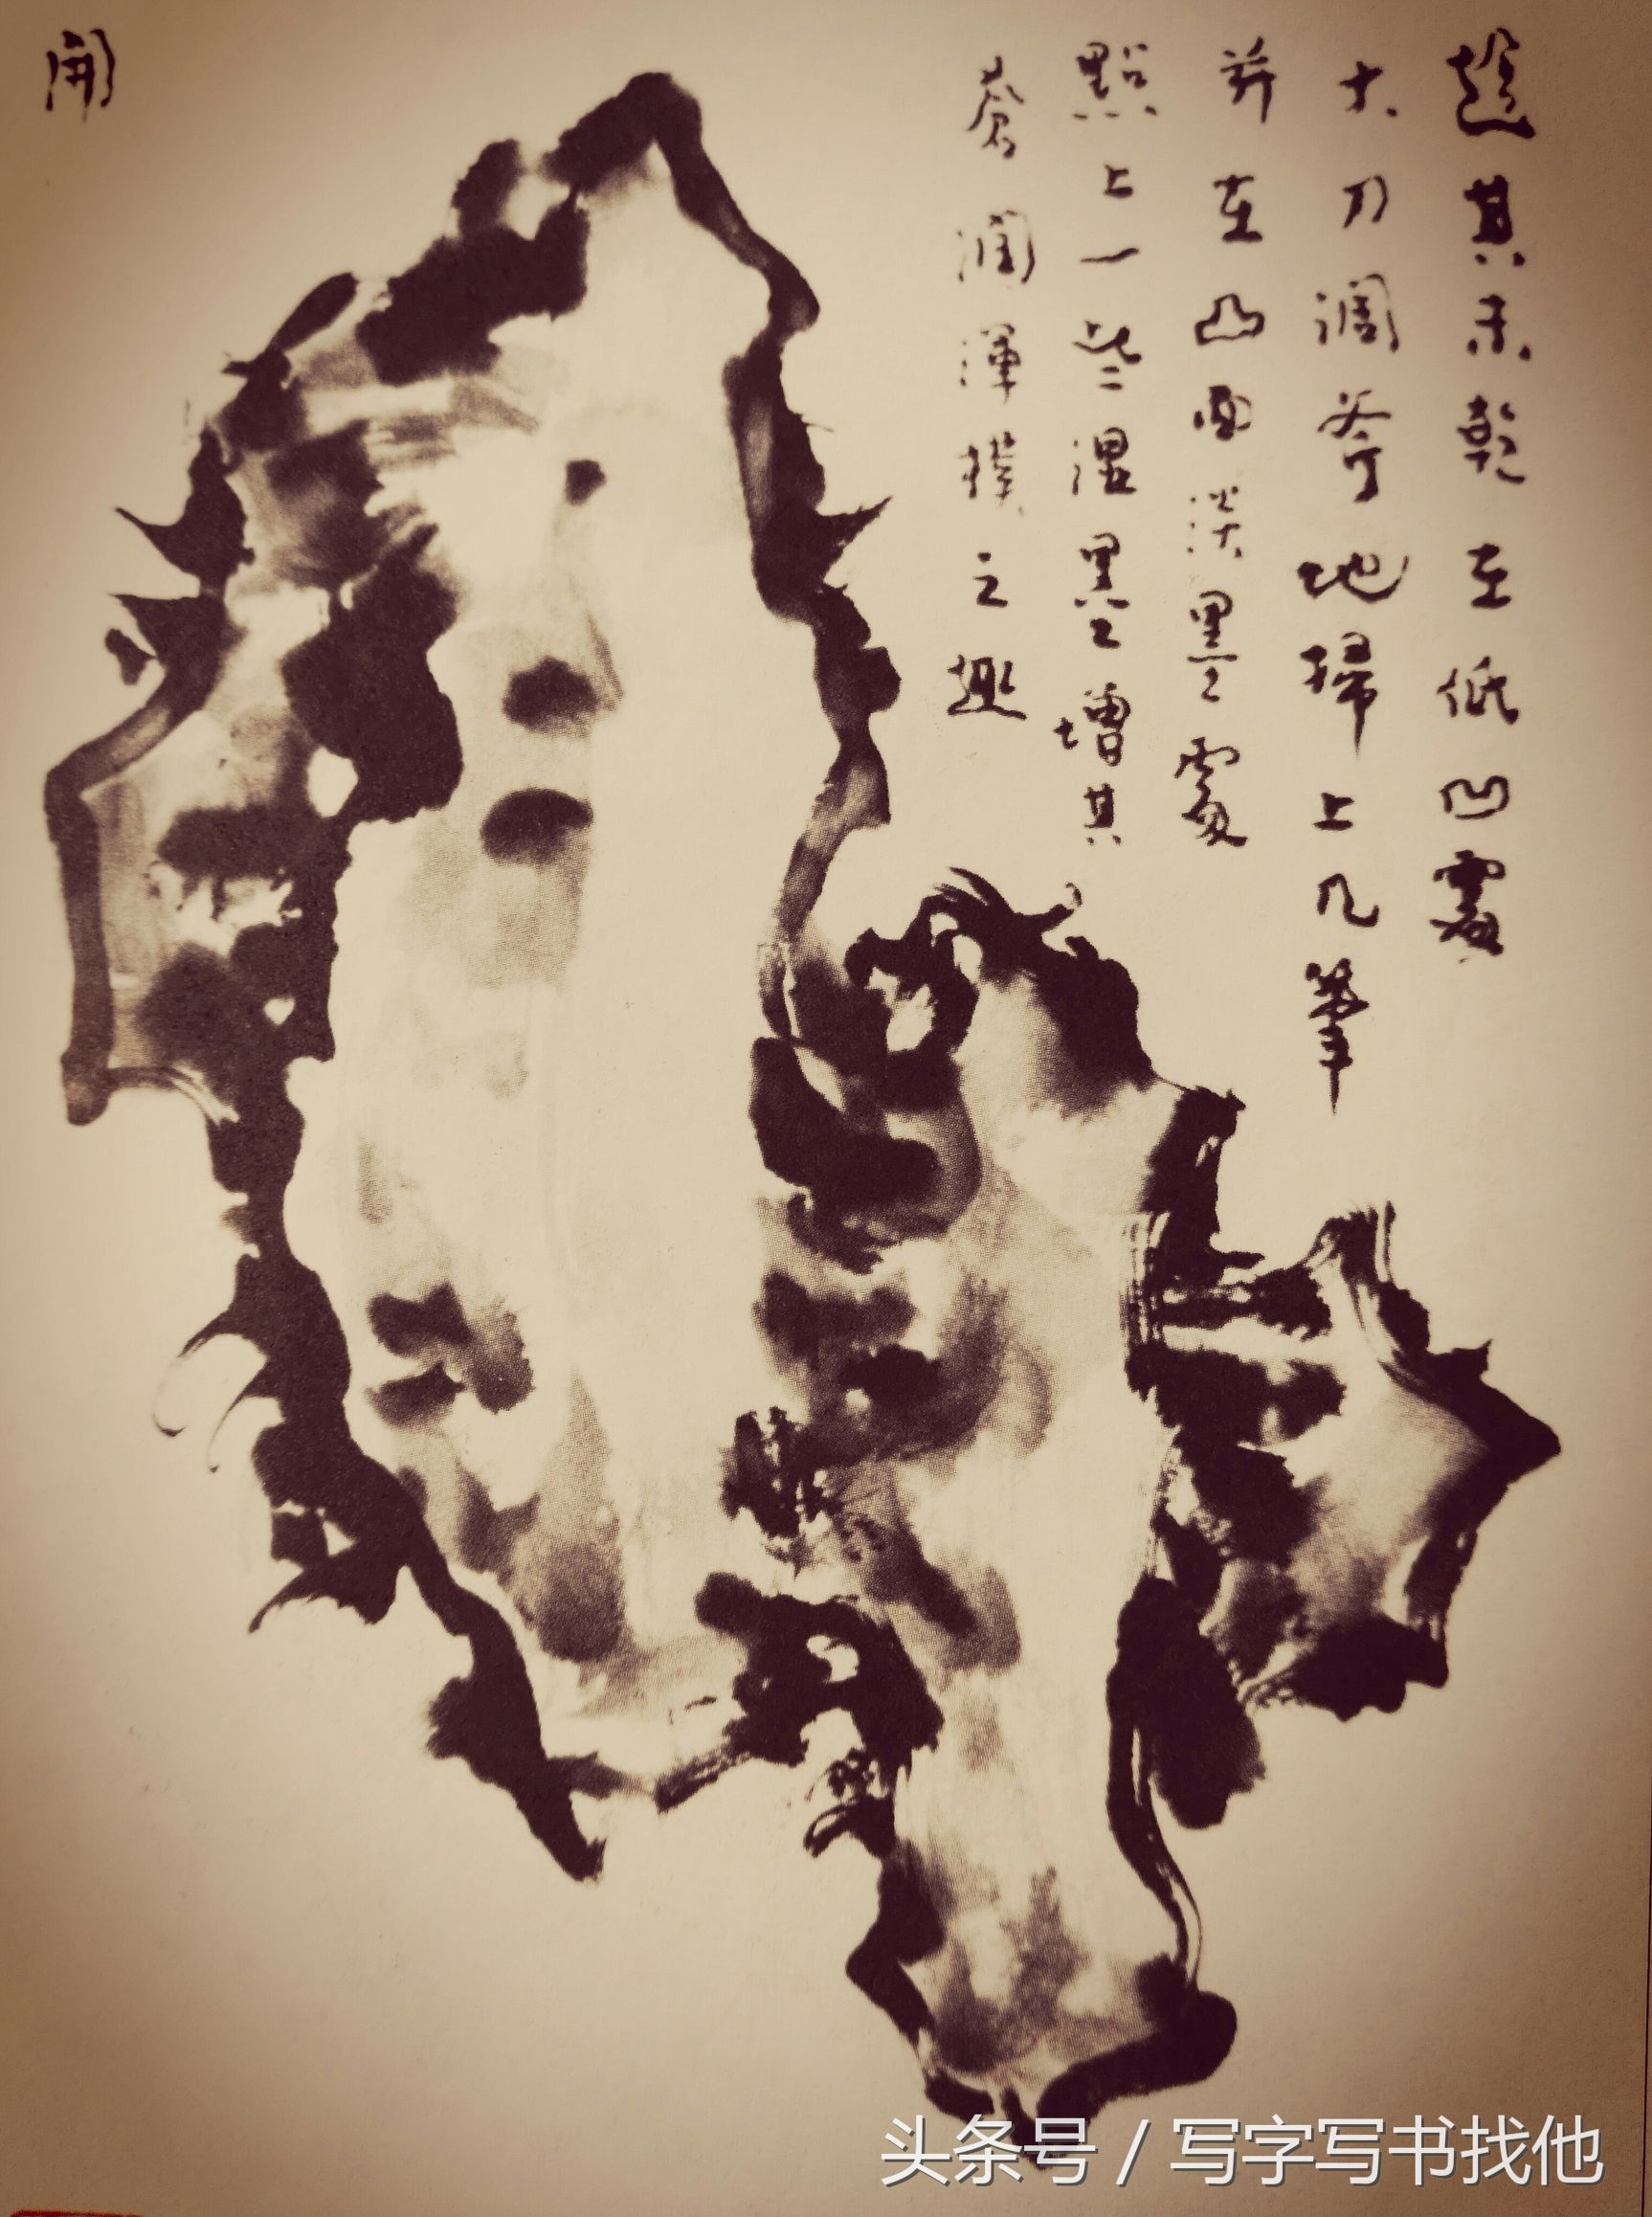 趁其未乾在低凹處
大刀濶斧地掃上几筆
并在凸面淡墨處
點上一些溼墨増其
蒼潤渾樸之趣
開
头条号 / 写字写书找他